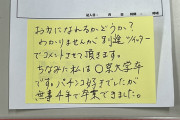 お力になれるかどうか?
わかりませんが 別途 ツイッター
でコメントさせて頂きます。
ちなみに私は〇東大学卒
です。パチンコ好きでしたが
無事4年で卒業できました。